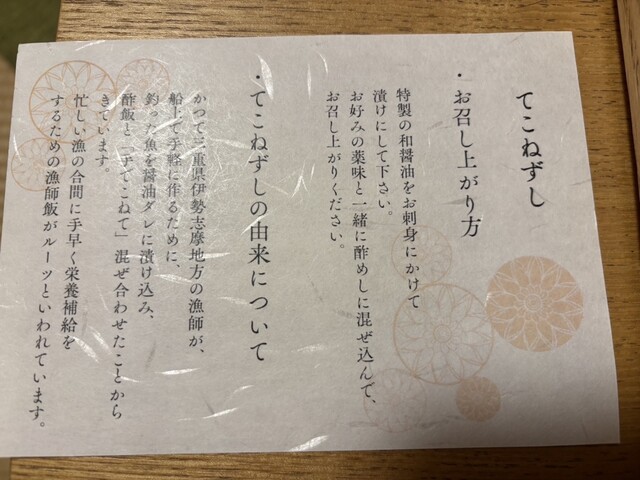 てこねずし
・お召し上がり方
特製の和醤油をお刺身にかけて
漬けにして下さい。
お好みの薬味と一緒に酢めしに混ぜ込んで、
お召し上がりください。
・てこねずしの由来について
かつて三重県伊勢志摩地方の漁師が、
船上で手軽に作るために、
釣った魚を醤油ダレに漬け込み、
酢飯と「手でこねて」混ぜ合わせたことから
きています。
忙しい漁の合間に手早く栄養補給を
するための漁師飯がルーツといわれています。